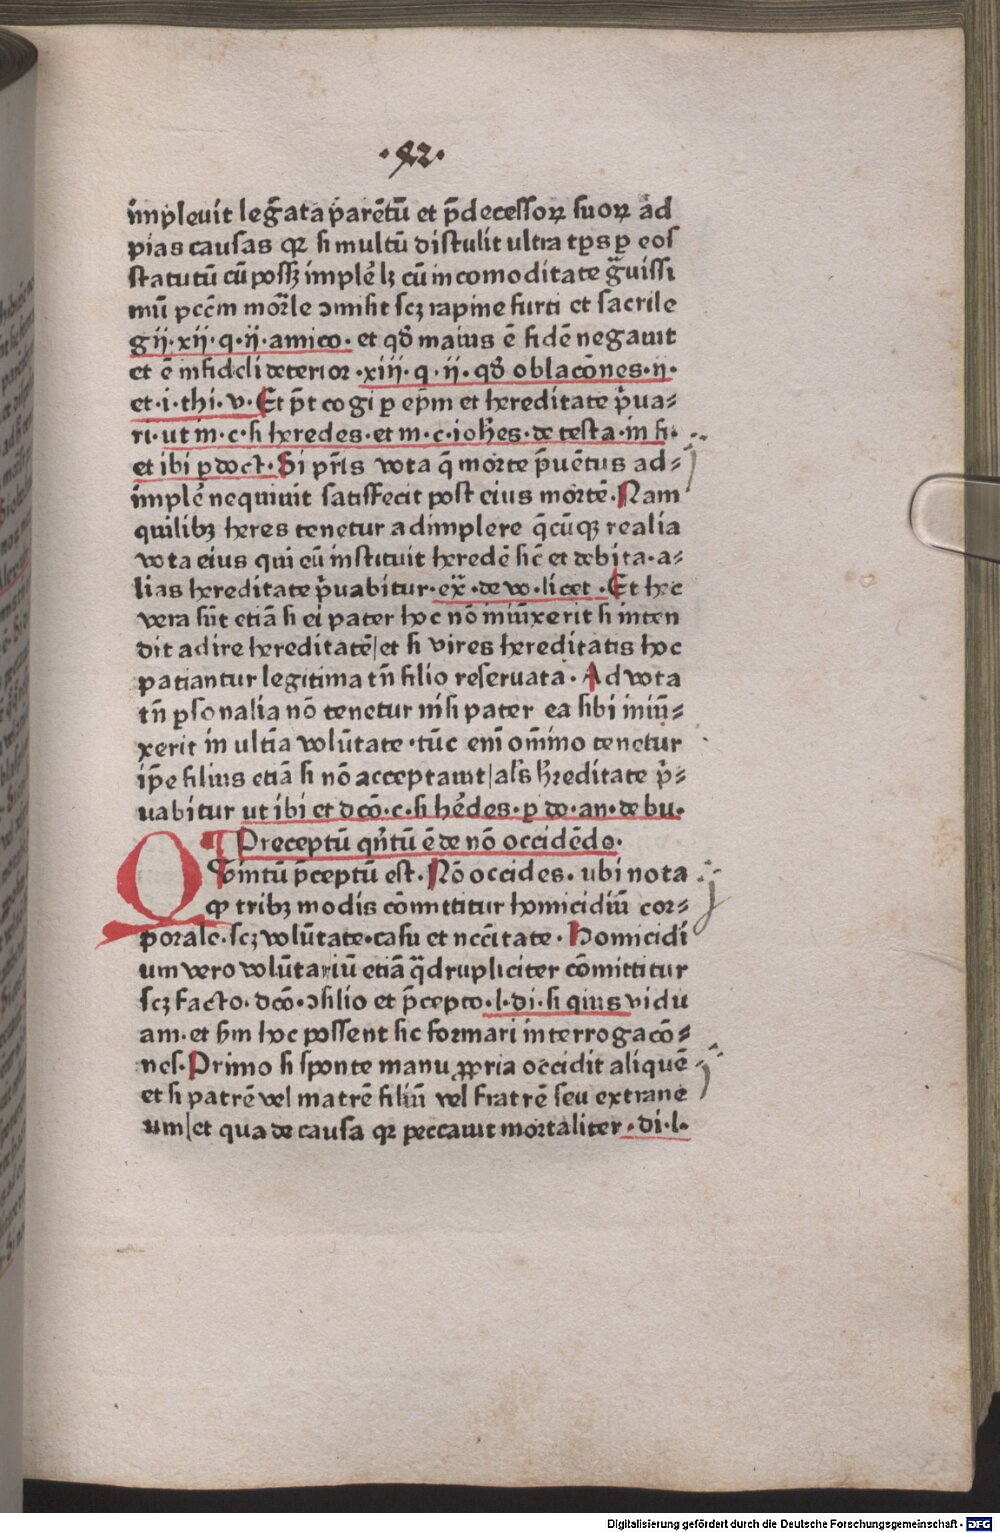 ·42·
implevit leg̃ata parẽtũ et p̃decessoꝝ suoꝝ ad
pias causas qꝛ si multũ distulit ultra tp̃s ꝑ eos
statutũ cũ possꝫ implẽ lꝫ cũ incomoditate g̃uissi
mũ pctm̃ morĩle ↄmisit scꝫ rapine furti et sacrile
gij·xij·q·ij·amico· et qđ maius ẽ fidẽ negauit
et ẽ infideli deterior·xiij·q·ij·qđ oblacõnes·ij·
et·i·thi·v·Et põt cogi ꝑ ep̃m et hereditate p̃ua⸗
ri·ut in·c·si heredes·et in·c·ioħes·de testa·in fi·
et ibi ꝑ doct·Si pr̃is vota q̃ morte p̃uẽtus ad⸗
implẽ nequiuit satisfecit post eius mortẽ·Nam
quilibꝫ heres tenetur adimplere q̃cũqꝫ realia
vota eius qui eũ instituit heredẽ sic̃ et debita·a⸗
lias hereditate p̃uabitur·ex̃·de vo·licet·Et hec
vera sũt etiã si ei pater hoc nõ iniũxerit si inten
dit adire hereditatẽ|et si vires hereditatis hoc
patiantur legitima tñ filio reseruata·Ad vota
tñ ꝑsonalia nõ tenetur nisi pater ea sibi iniũ⸗
xerit in ultĩa volũtate·tũc eni om̃ino tenetur
ip̃e filius etiã si nõ acceptauit|als̃ ħreditate p̃⸗
uabitur ut ibi et dcõ·c·si hẽdes·ꝑ do·an·de bu·
Preceptũ qñtũ ẽ de nõ occidẽdo·
Quintũ p̃ceptũ est·Nõ occides·ubi nota
ꝙ tribꝫ modis cõmittitur homicidiũ cor⸗
porale·scꝫ volũtate·casu et nec̃itate·Homicidi
um vero volũtariũ etiã q̃drupliciter cõmittitur
scꝫ facto·dcõ·ↄsilio et p̃cepto·l·di·si quis vidu
am·et sm̃ hoc possent sic formari interrogacõ⸗
nes·Primo si sponte manu ꝓpria occidit aliquẽ
et si patrẽ vel matrẽ filiũ vel fratrẽ seu extrane
um|et qua de causa qꝛ peccauit mortaliter·di·l·
Digitalisierung gefördert durch die Deutsche Forschungsgemeinschaft - DFG